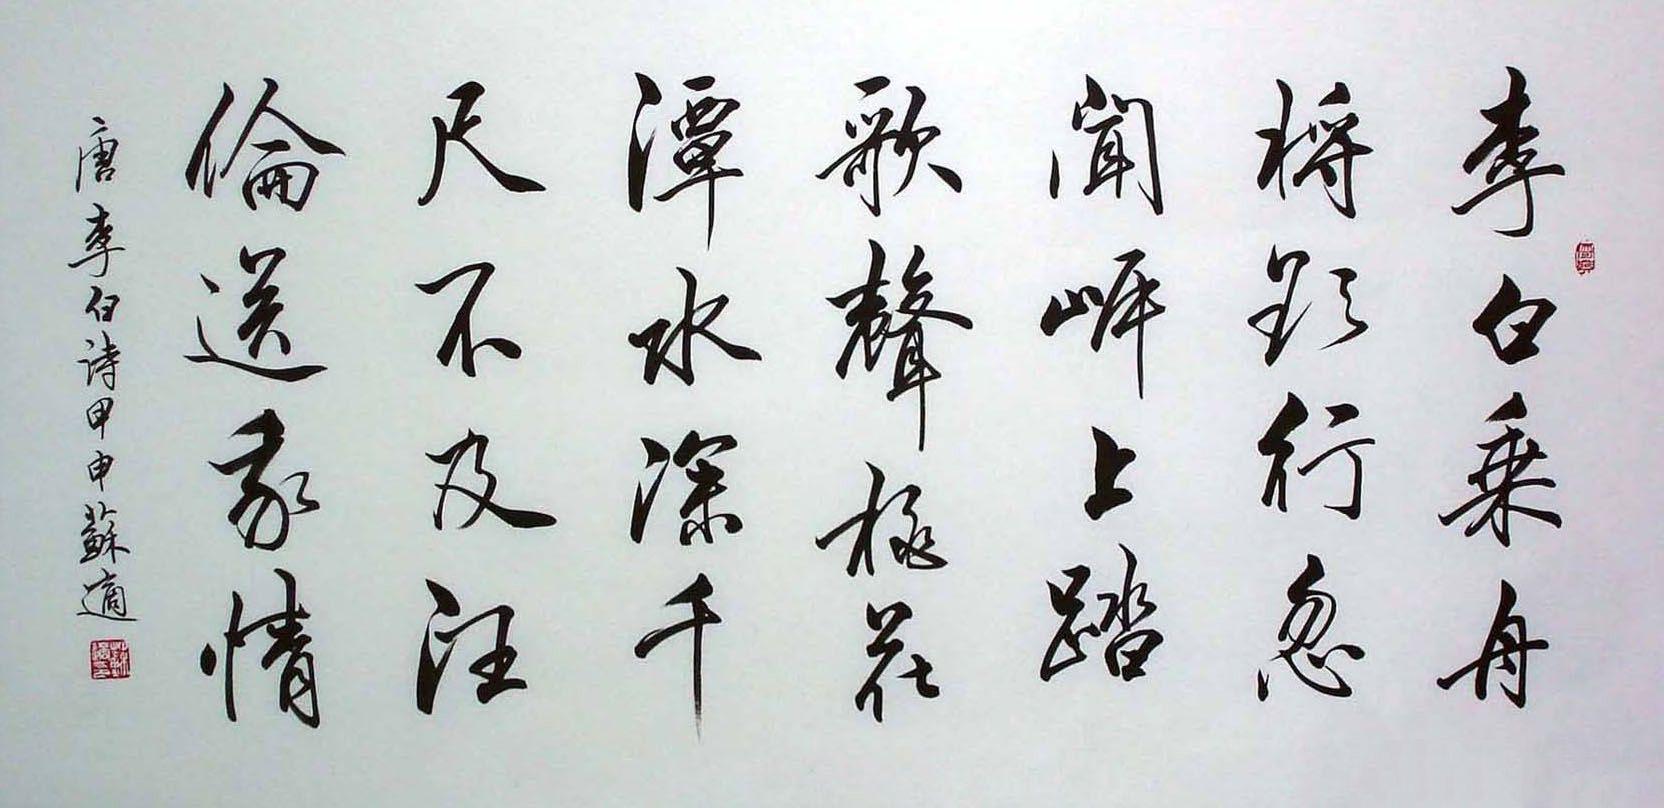 李白乘舟
将欲行忽
聞岸上踏
歌聲桃花
潭水深千
尺不及汪
倫送我情
唐李白詩甲申蘇適